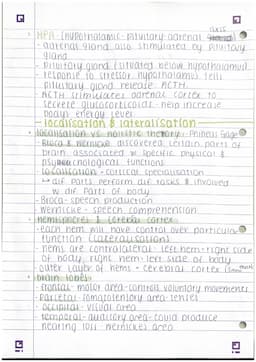 axis
HPA - (hypothalamic - pituitary - adrenal
- adrenal gland also stimulated by pituitary
gland
- pituitary gland (situated below hypothalamus)
response to stressor, hypothalamus tells
pituitary gland release ACTH.
- ACTH stimulates adrenal cortex to
secrete glucocorticoids - help increase
body's energy level
- localisation & lateralisation
localisation vs holistic theory - Phineas Gage
- Broca & Wernicke discovered certain parts of
brain associated w specific physical &
psychological functions
- localisation = cortical specialisation
↳ dif parts perform dif tasks & involved
w dif parts of body
- Broca - speech production
- Wernicke - speech comprehension
hemispheres & cerebral cortex
- each hem will have control over particular
function (lateralisation)
- hems are contralateral: left hem = right side
of body, right hem = left side of body
- outer layer of hems = cerebral cortex (3mm
brain lobes
- frontal - motor area - control voluntary movements
- parietal - somatosensory area - senses
- occipital - visual area
- temporal - auditory area - could produce
hearing loss. wernickes area.